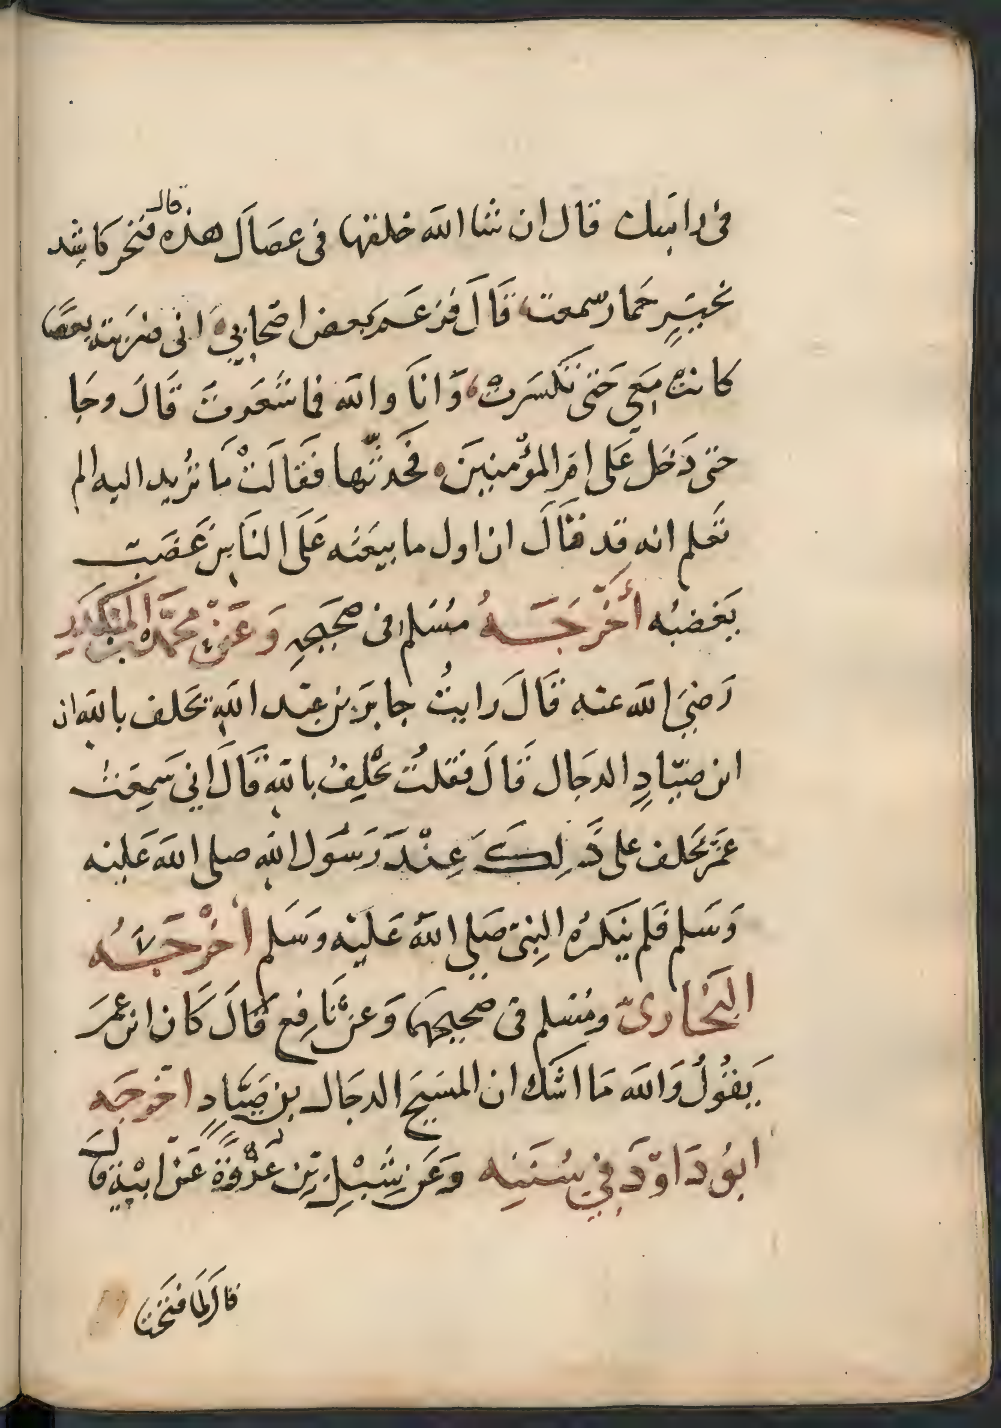 في راسك قال ان شا الله خلقها في عصال هذه قال فنخر كاشد
نخير حمار سمعت قال فزعم بعض اصحابي اني ضربته بعصا
كانت معي حتى تكسرت وانا والله فما شعرت قال وجا
حتى دخل على ام المؤمنين فحدثها فقالت ما تريد اليه الم
تعلم انه قد قال ان اول ما يبعثه على الناس غضب
يغضبه أخرجه مسلم في صحيحه وعن محمد بن المنكدر
رضي الله عنه قال رايت جابر بن عبد الله يحلف بالله ان
ابن صياد الدجال قال فقلت تحلف بالله قال اني سمعت
عمر يحلف على ذلك عند رسول الله صلى الله عليه
وسلم فلم ينكره النبي صلى الله عليه وسلم اخرجه
البخاري ومسلم في صحيحهما وعن نافع قال كان ابن عمر
يقول والله ما اشك ان المسيح الدجال بن صياد اخرجه
ابو داود في سننه وعن شبل بن عروة عن ابيه قال
قال لما فتحنا